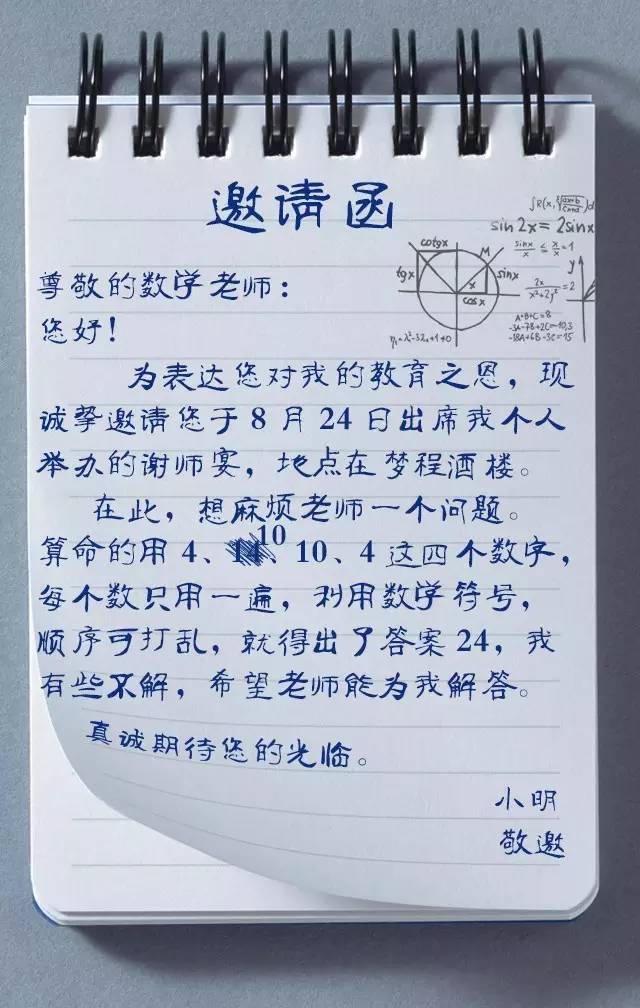 邀请函
∫R(x,
sin2x = 2sinx
sinx/x ≤ x/x = 1
cotgx
M
tgx
sinx
x
cosx
y
2x/x²+2y² = 2
A+B+C=8
-3A-7B+2C=10,3
-18A+6B-3C=15
尊敬的数学老师：
您好！
为表达您对我的教育之恩，现
诚挚邀请您于 8 月 24 日出席我个人
举办的谢师宴，地点在梦程酒楼。
在此，想麻烦老师一个问题。
算命的用 4、10、10、4 这四个数字，
每个数只用一遍，利用数学符号，
顺序可打乱，就得出了答案 24，我
有些不解，希望老师能为我解答。
真诚期待您的光临。
小明
敬邀